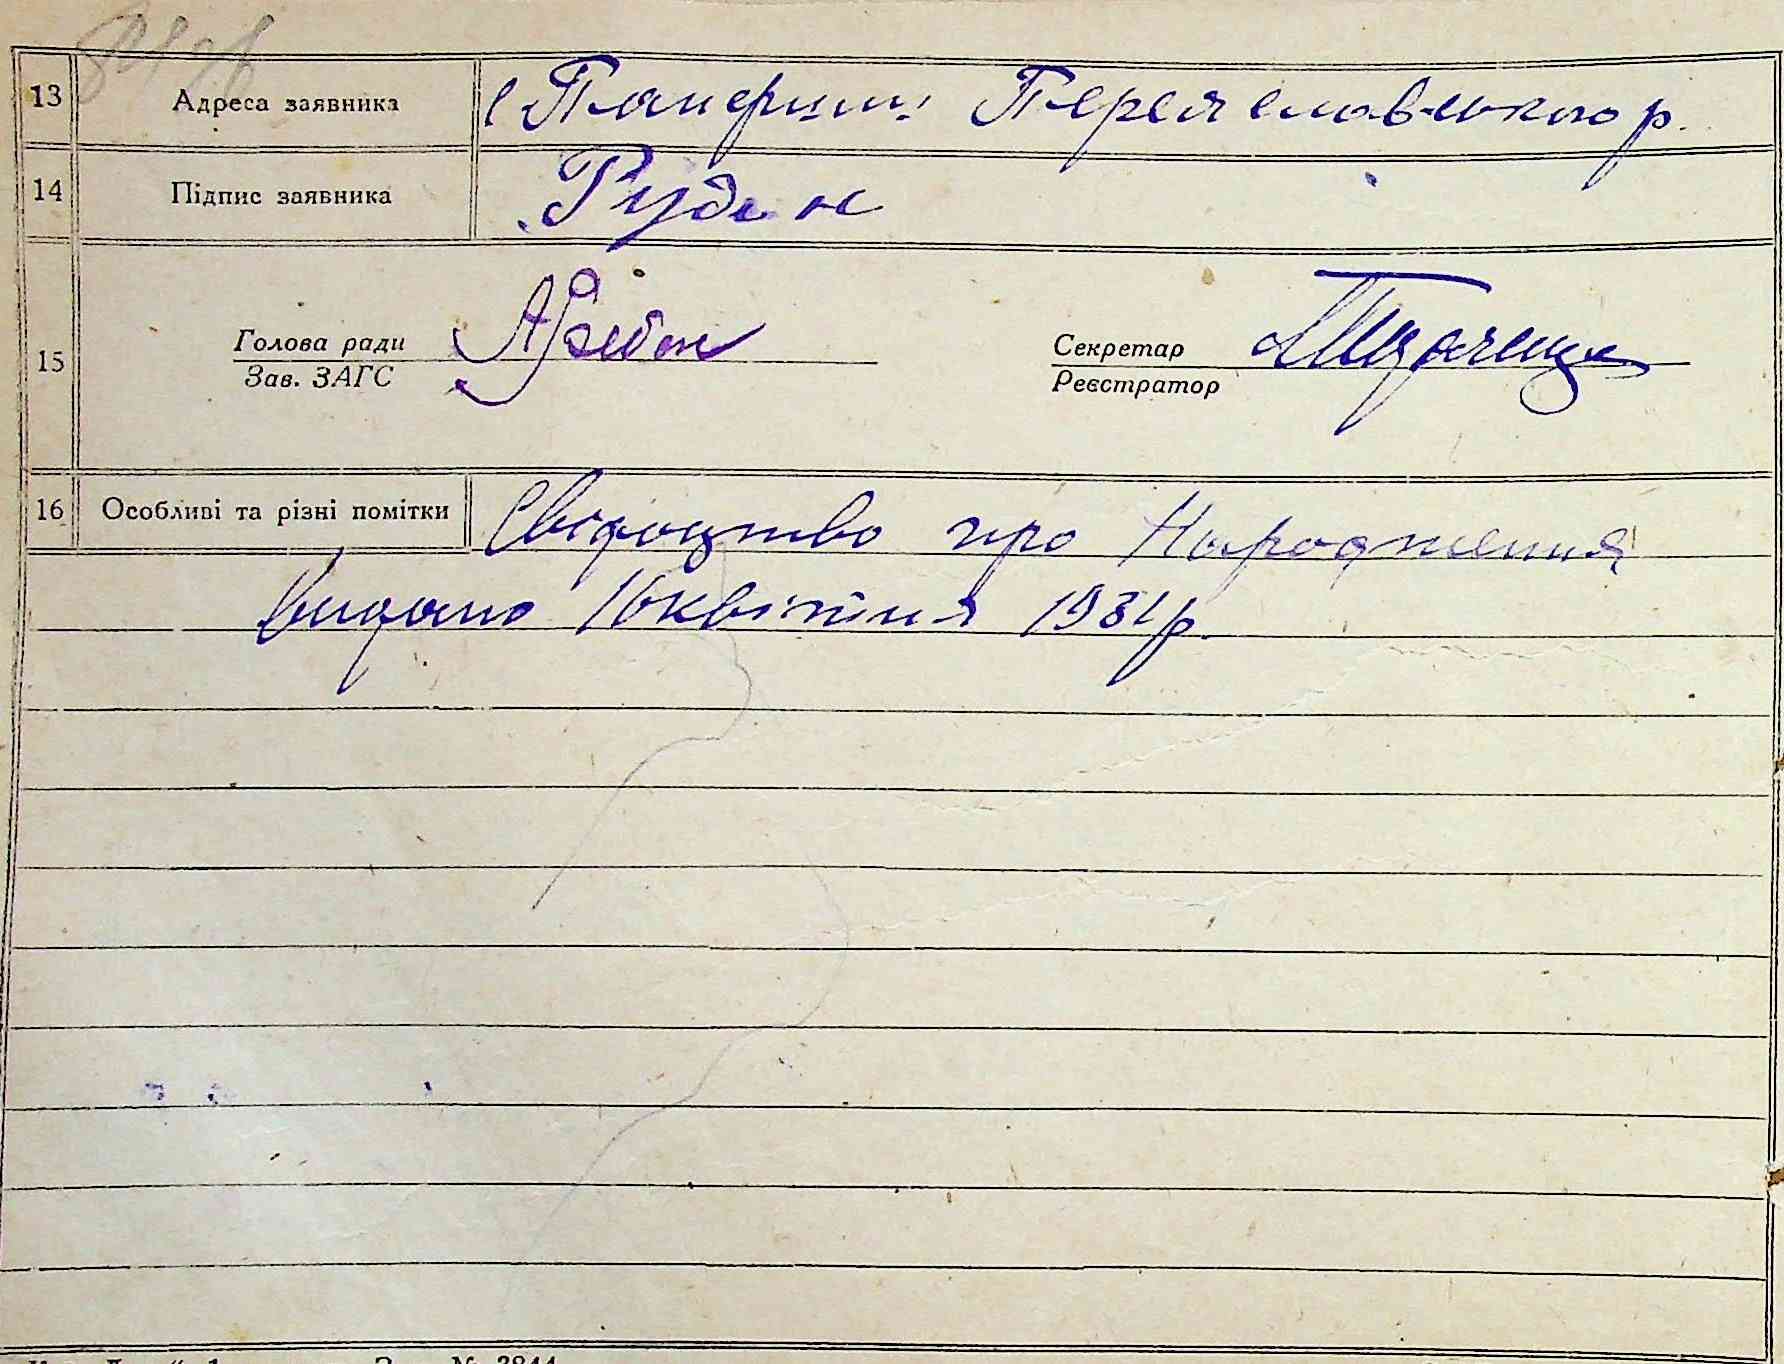 13 Адреса заявника с Панфили Переяславського р.
14 Підпис заявника Рудик
15 Голова ради
Зав. ЗАГС
Секретар Ткаченко
Реєстратор
16 Особливі та різні помітки Свідоцтво про Народження
видано 16 квітня 1931 р.
№ 3844